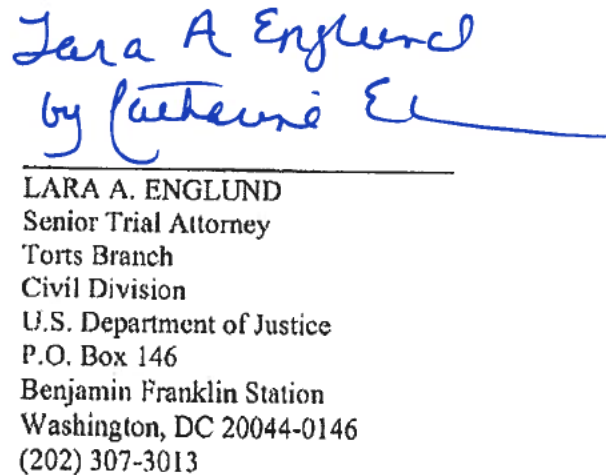 Lara A Englund
by Catherine
LARA A. ENGLUND
Senior Trial Attorney
Torts Branch
Civil Division
U.S. Department of Justice
P.O. Box 146
Benjamin Franklin Station
Washington, DC 20044-0146
(202) 307-3013